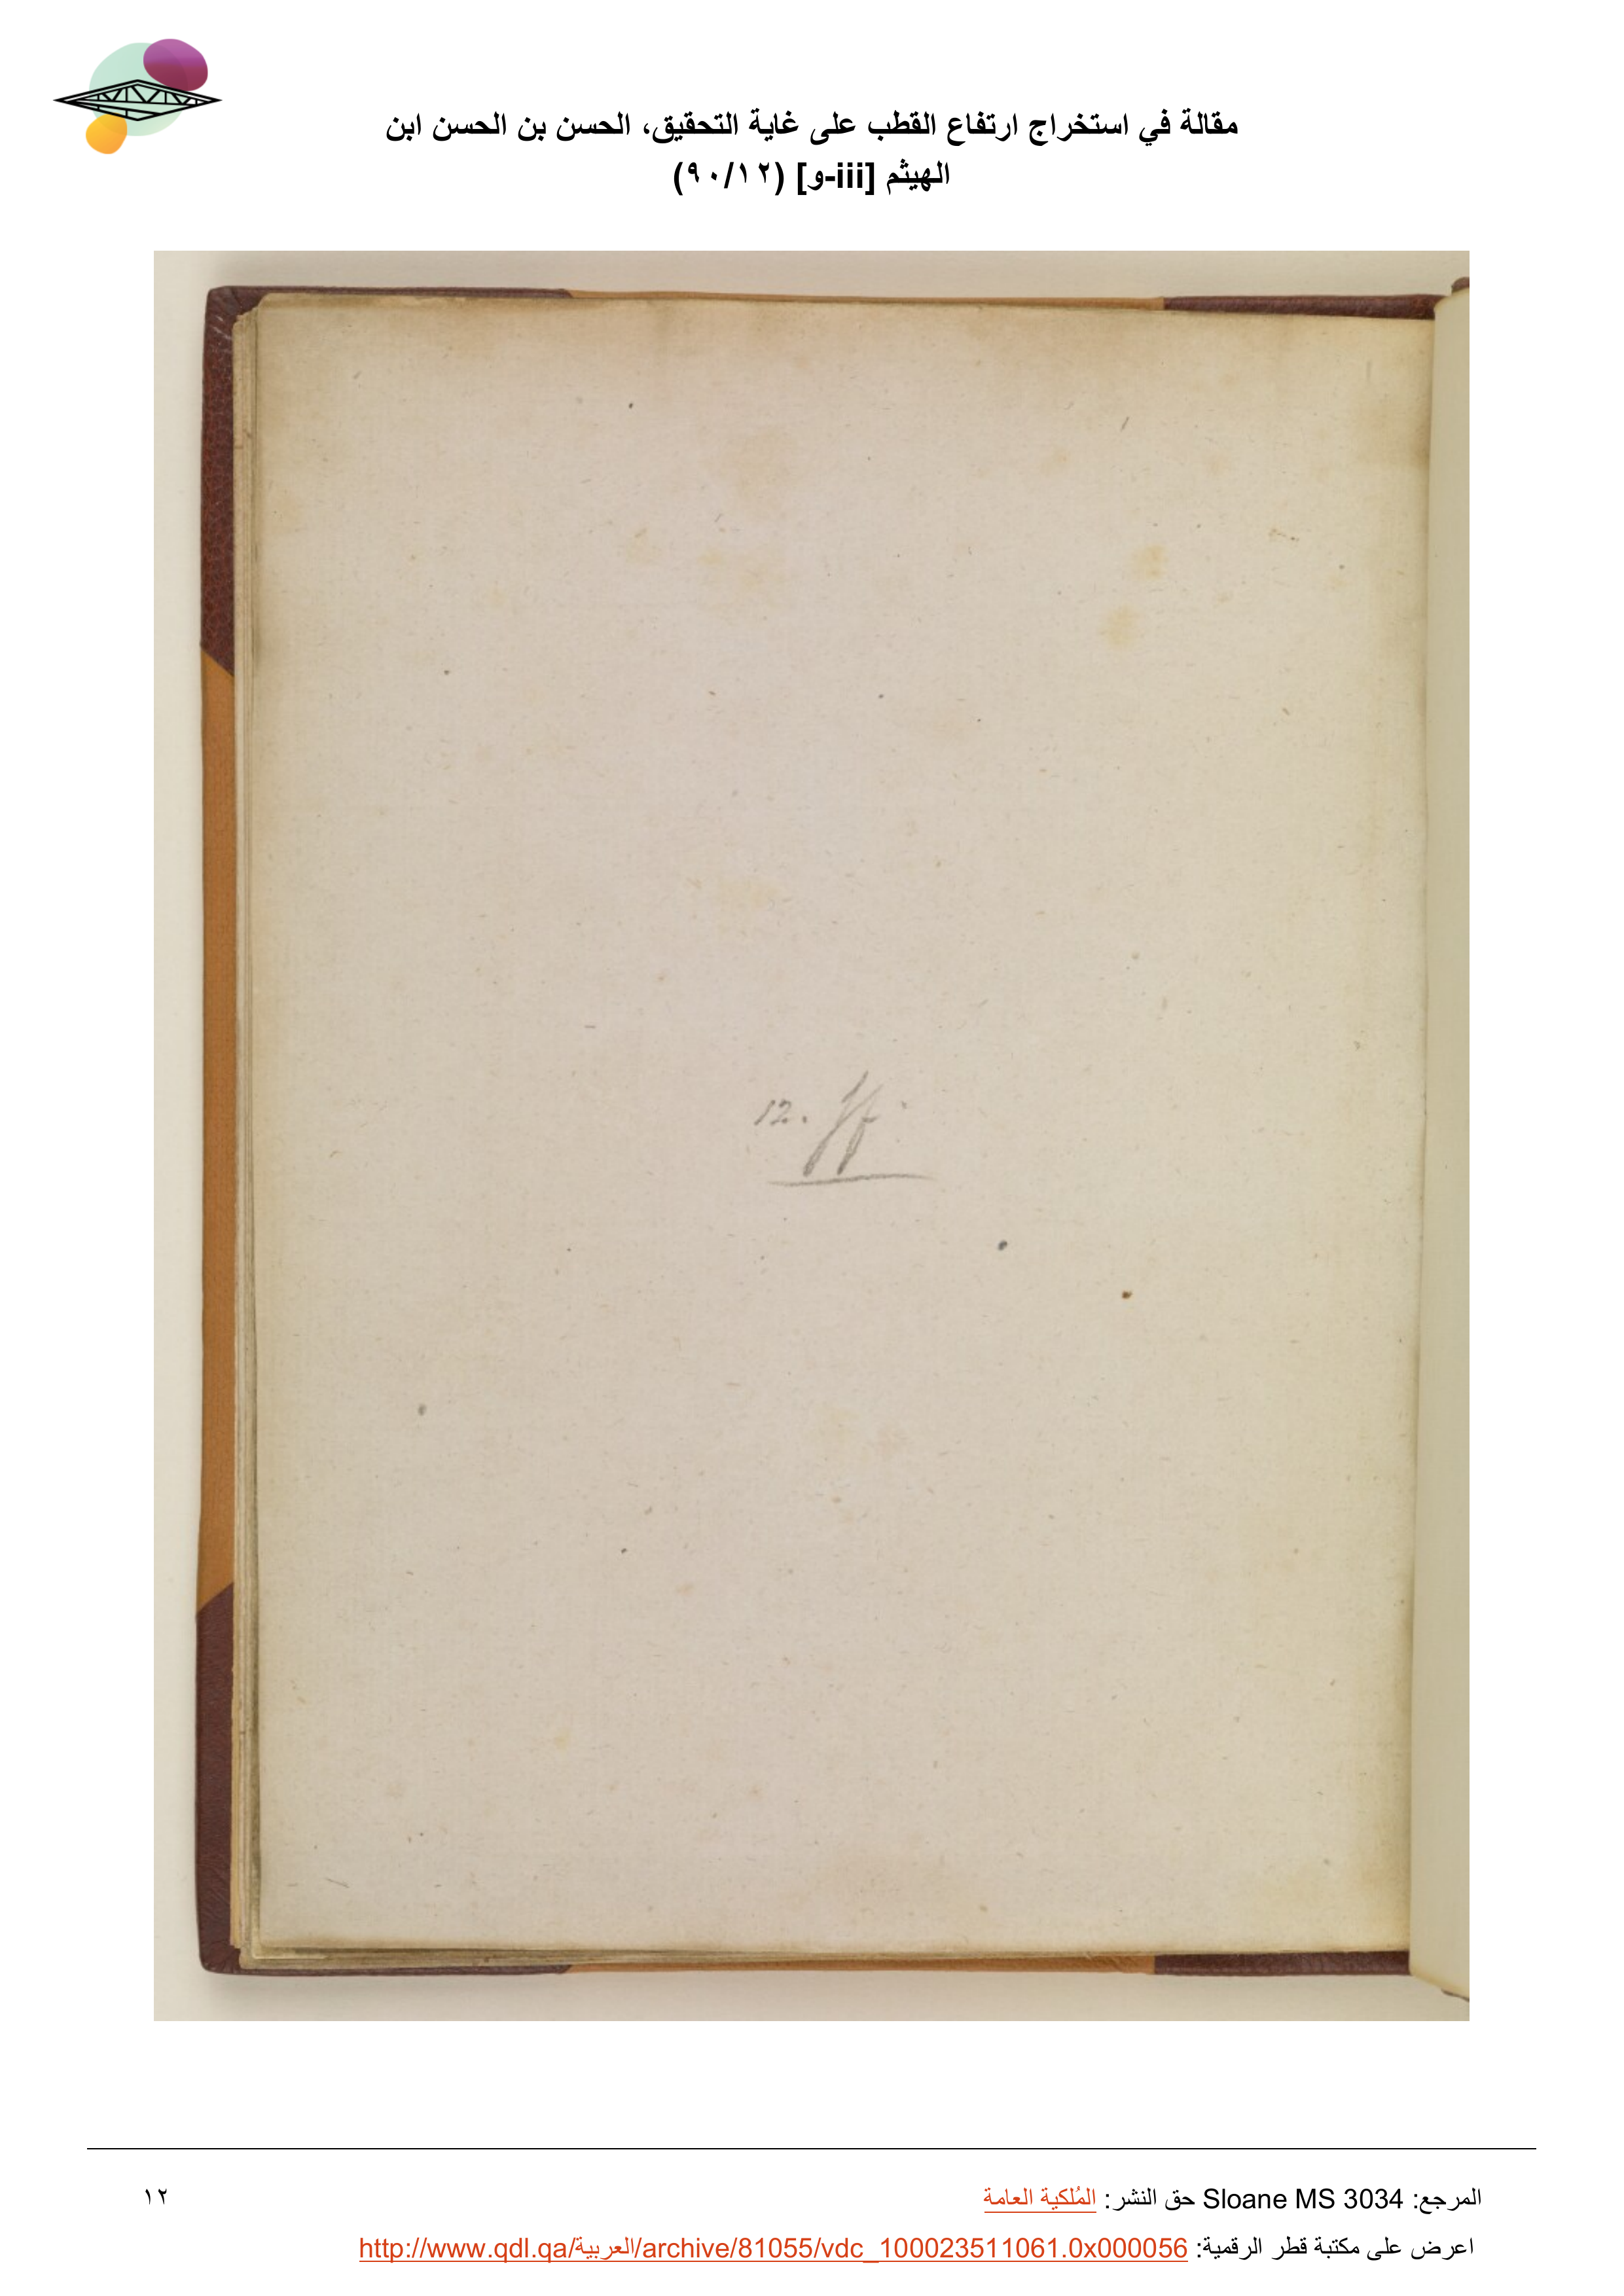 مقالة في استخراج ارتفاع القطب على غاية التحقيق، الحسن بن الحسن ابن
الهيثم [iii-و] (٩٠/١٢)
12. ff.
المرجع: Sloane MS 3034 حق النشر: المُلكية العامة
١٢
اعرض على مكتبة قطر الرقمية: http://www.qdl.qa/العربية/archive/81055/vdc_100023511061.0x000056